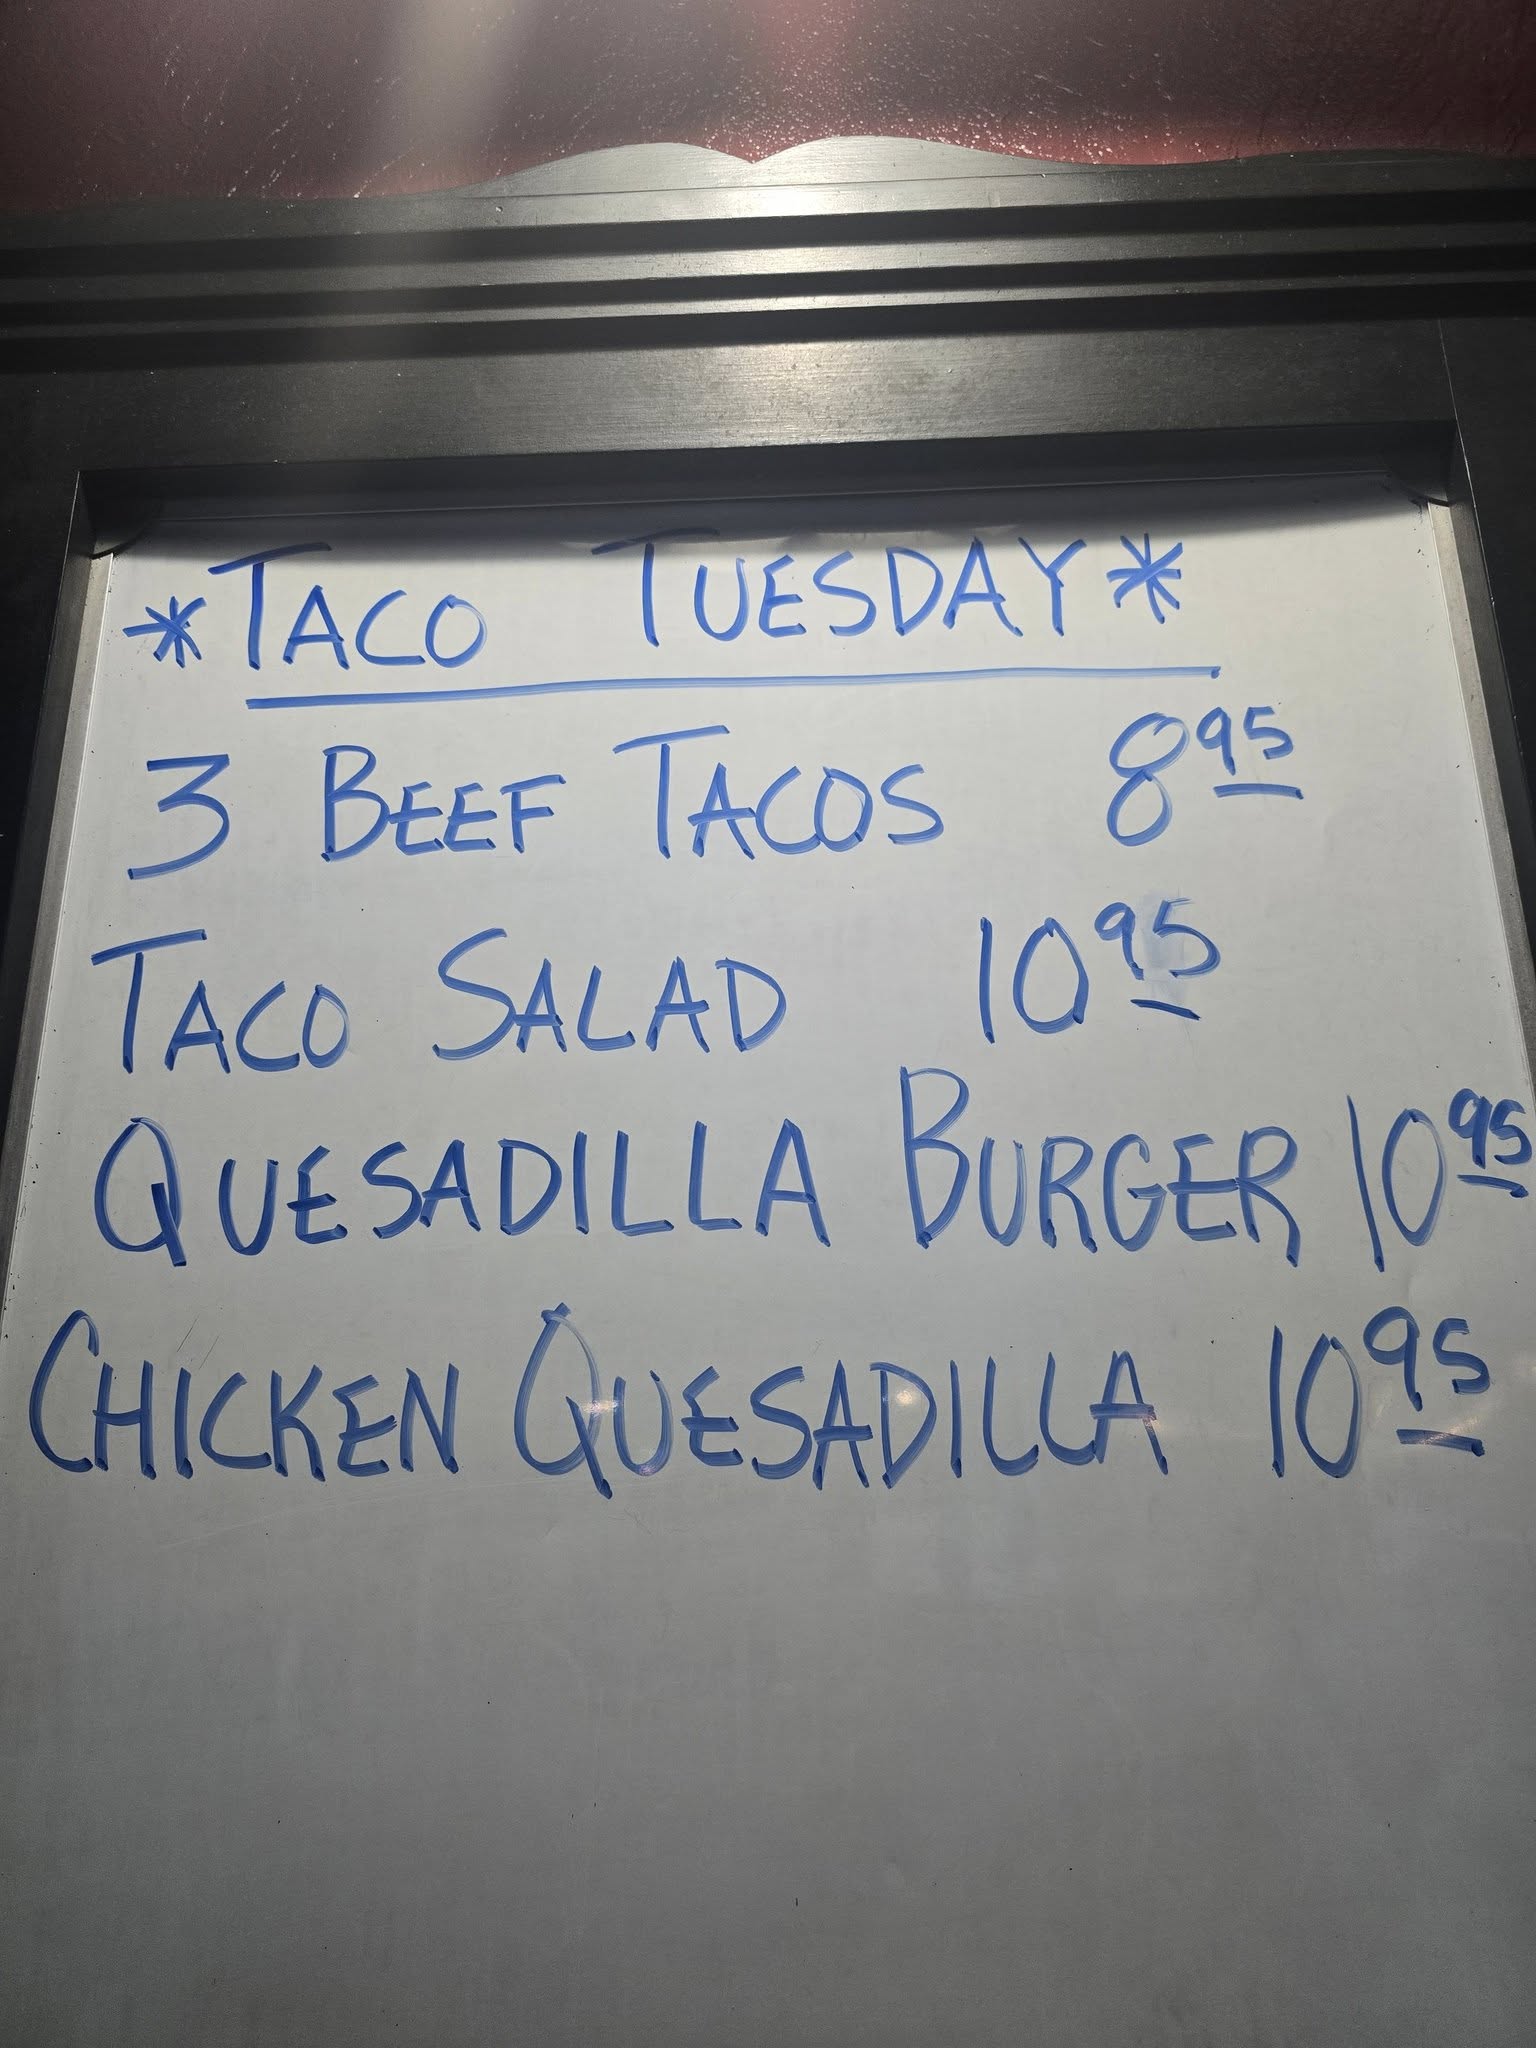 *TACO TUESDAY*
3 BEEF TACOS 8 95
TACO SALAD 10 95
QUESADILLA BURGER 10 95
CHICKEN QUESADILLA 10 95